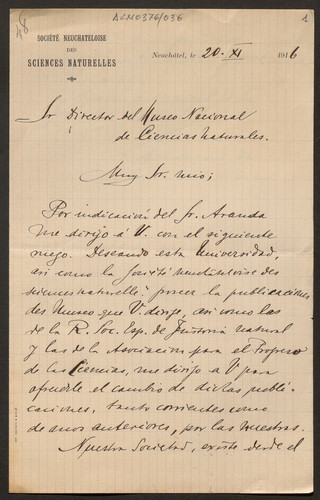 ACN0376/036
SOCIÉTÉ NEUCHATELOISE
DES
SCIENCES NATURELLES
Neuchâtel, le 20. XI 1916
1
Sr Director del Museo Nacional
de Ciencias naturales.
Muy Sr. mio;
Por indicación del Sr. Aranda
me dirijo á V. con el siguiente
ruego. Deseando esta Universidad,
asi como la Société neuchateloise des
sciences naturelles poseer la publicaciones
del Museo que V. dirige, asi como las
de la R. Soc. Esp. de Historia natural
y las de la Asociacion para el Progreso
de las Ciencias, me dirijo á V para
ofrecerle el cambio de dichas publi-
caciones, tanto corrientes como
de anos anteriores, por las nuestras.
Nuestra Sociedad, existe desde el